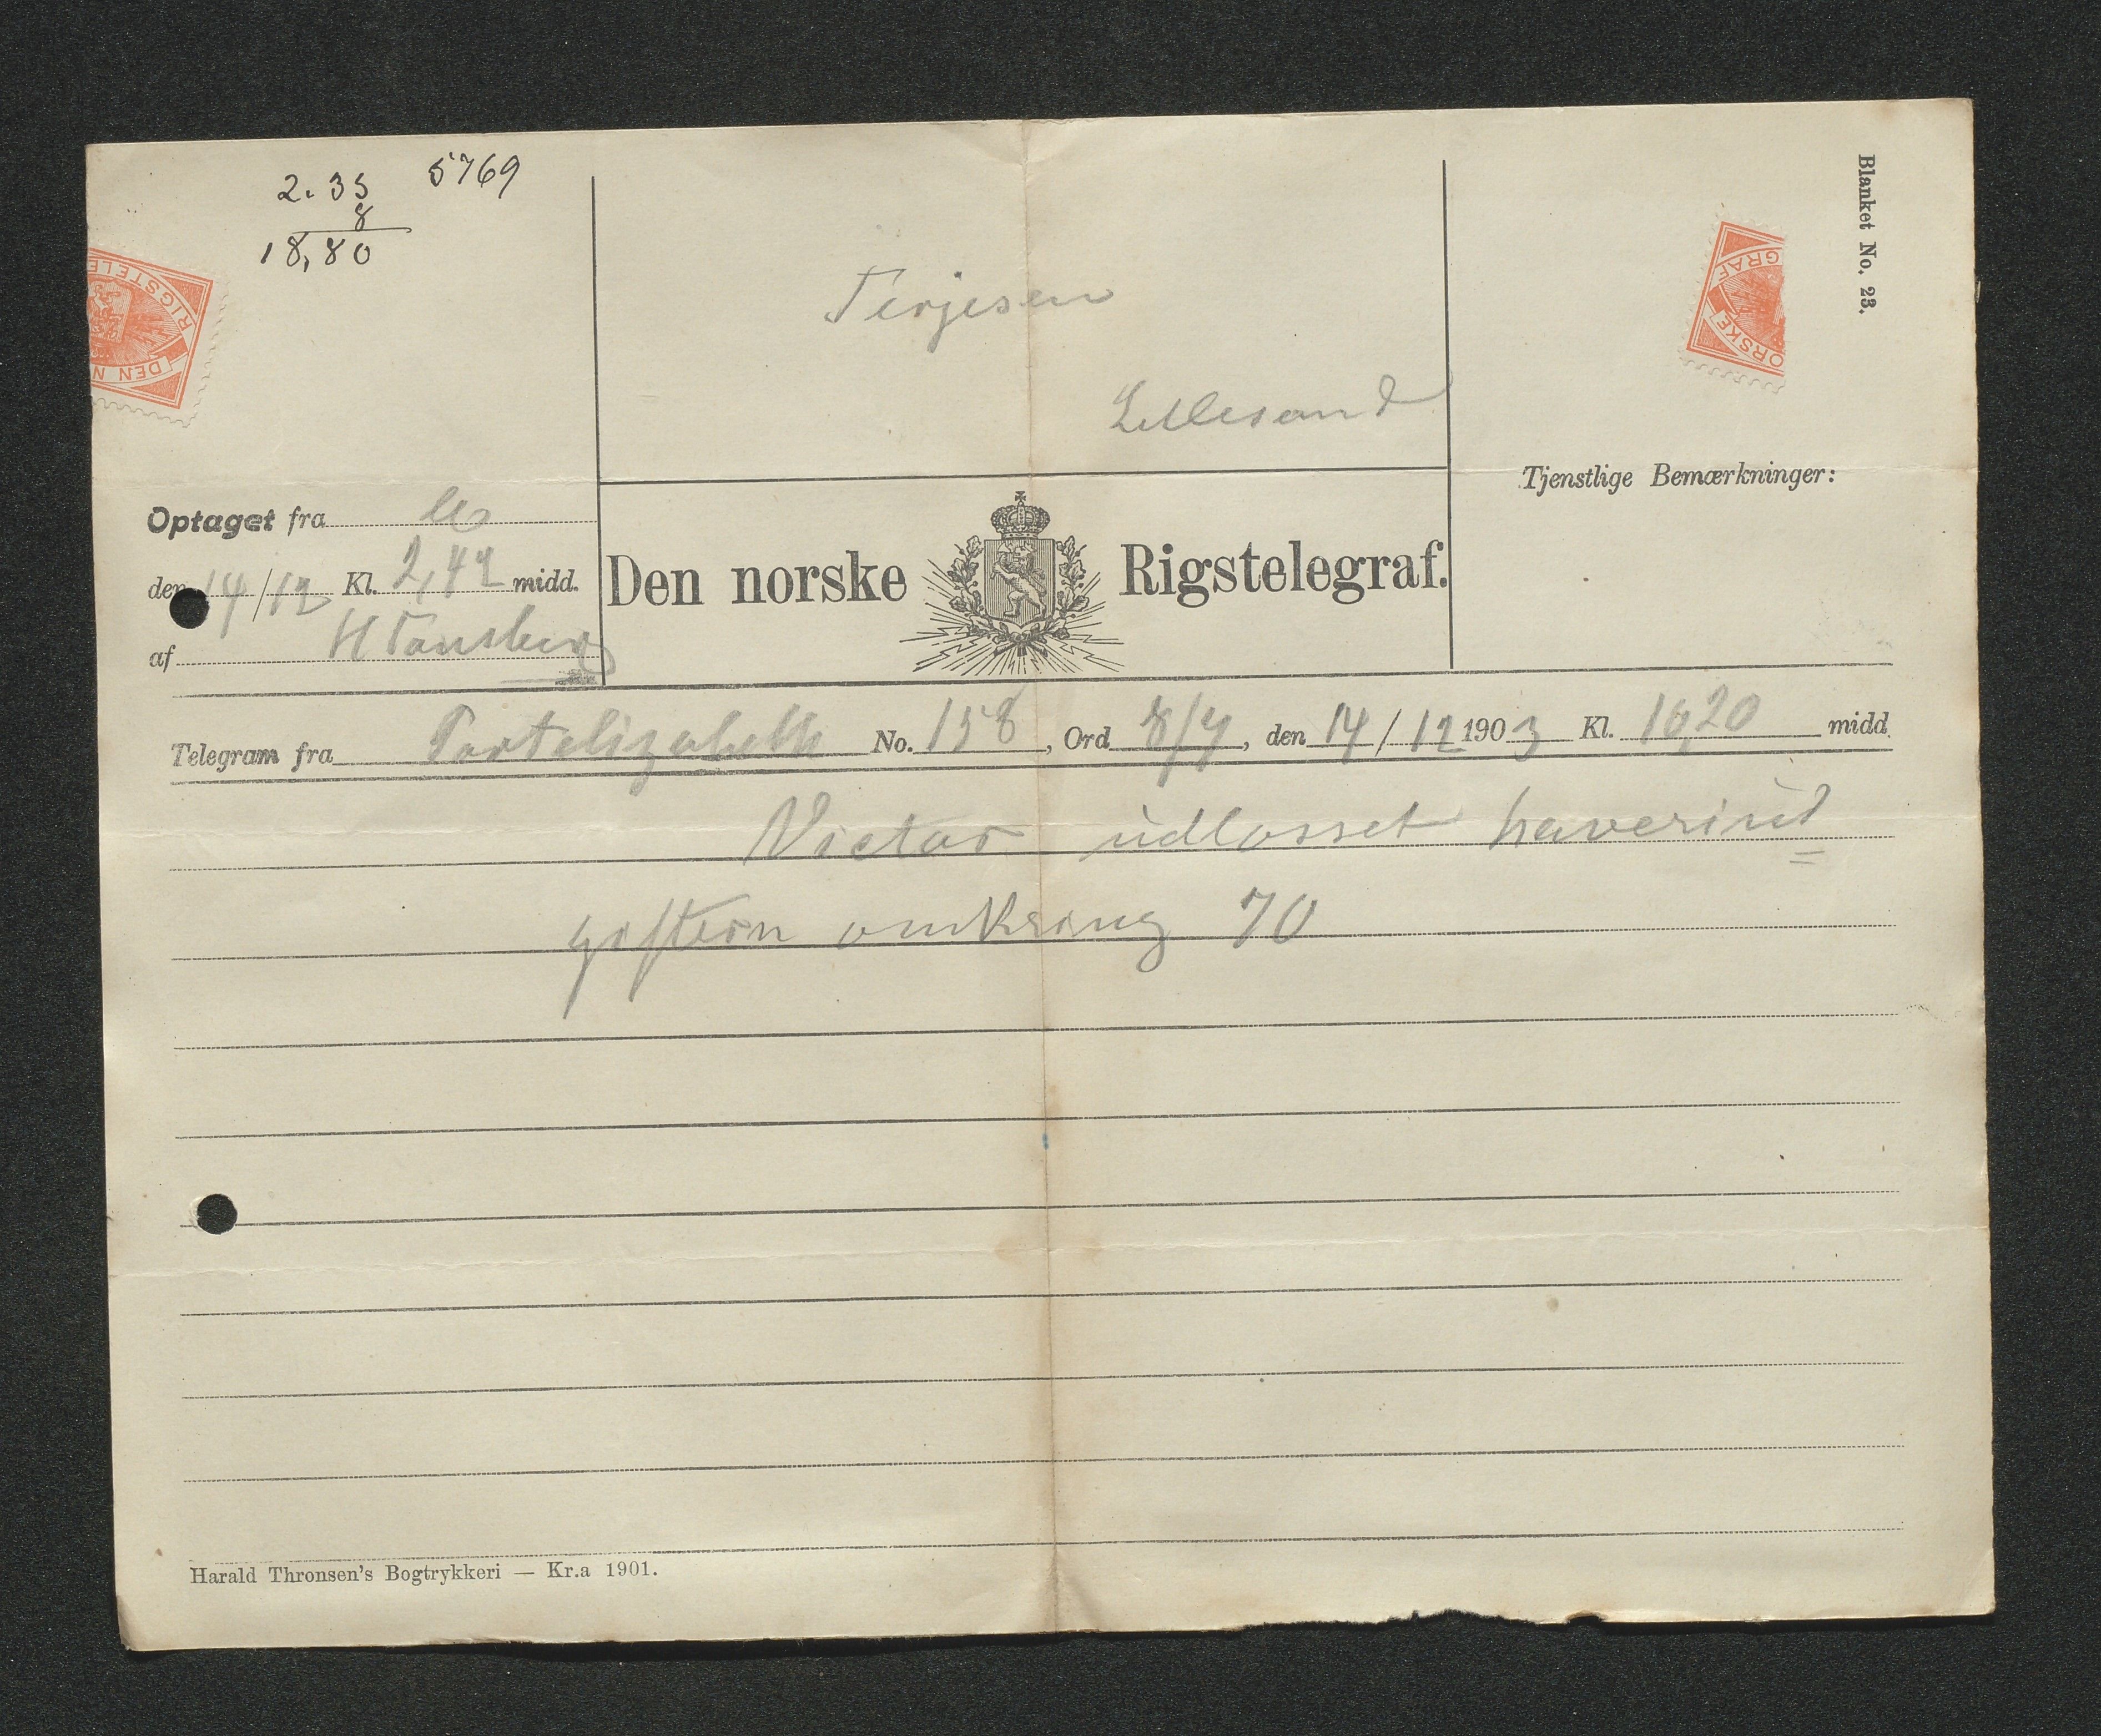 Blanket No. 23.
2.35 5769
8
18,80
RIGSTELE
DEN N
GRAF
ORSKE
Terjesen
Lillesand
Tjenstlige Bemærkninger:
Optaget fra
den 14/12 Kl. 2,42 midd.
af H Tønsberg
Den norske Rigstelegraf.
Telegram fra Portelizabeth No. 158, Ord 8/7, den 14/12 1903 Kl. 10,20 midd.
Victor udlosset haverirt
omkring 70
Harald Thronsen's Bogtrykkeri — Kr.a 1901.